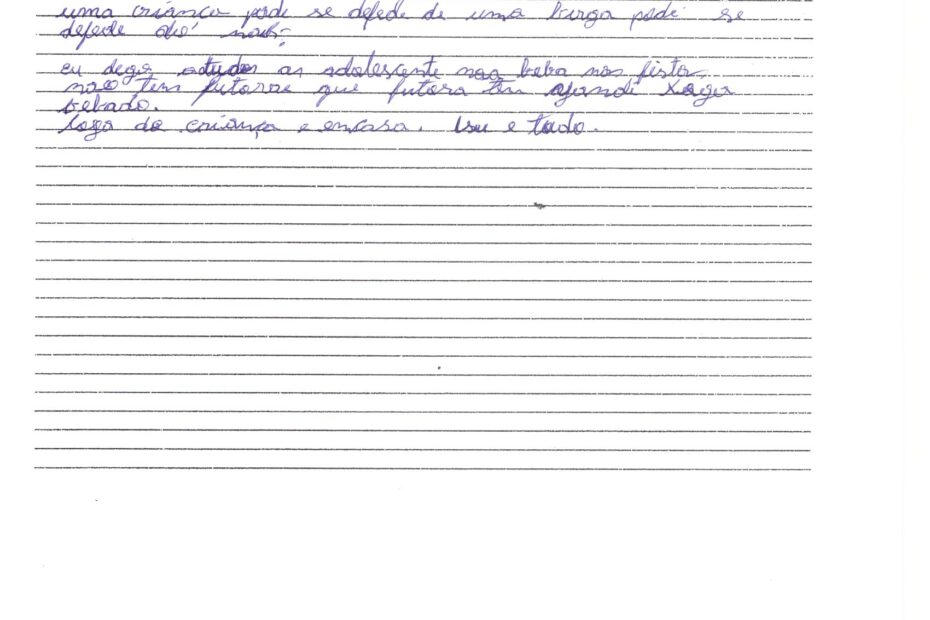 uma criança pode se defede de uma birga pode se
defede até mais;
eu dego a tudos as adolescente nao beba nas fista
não tem futorae que futora tem
bebado.
loga da criança e encasa. Isu e tudo.